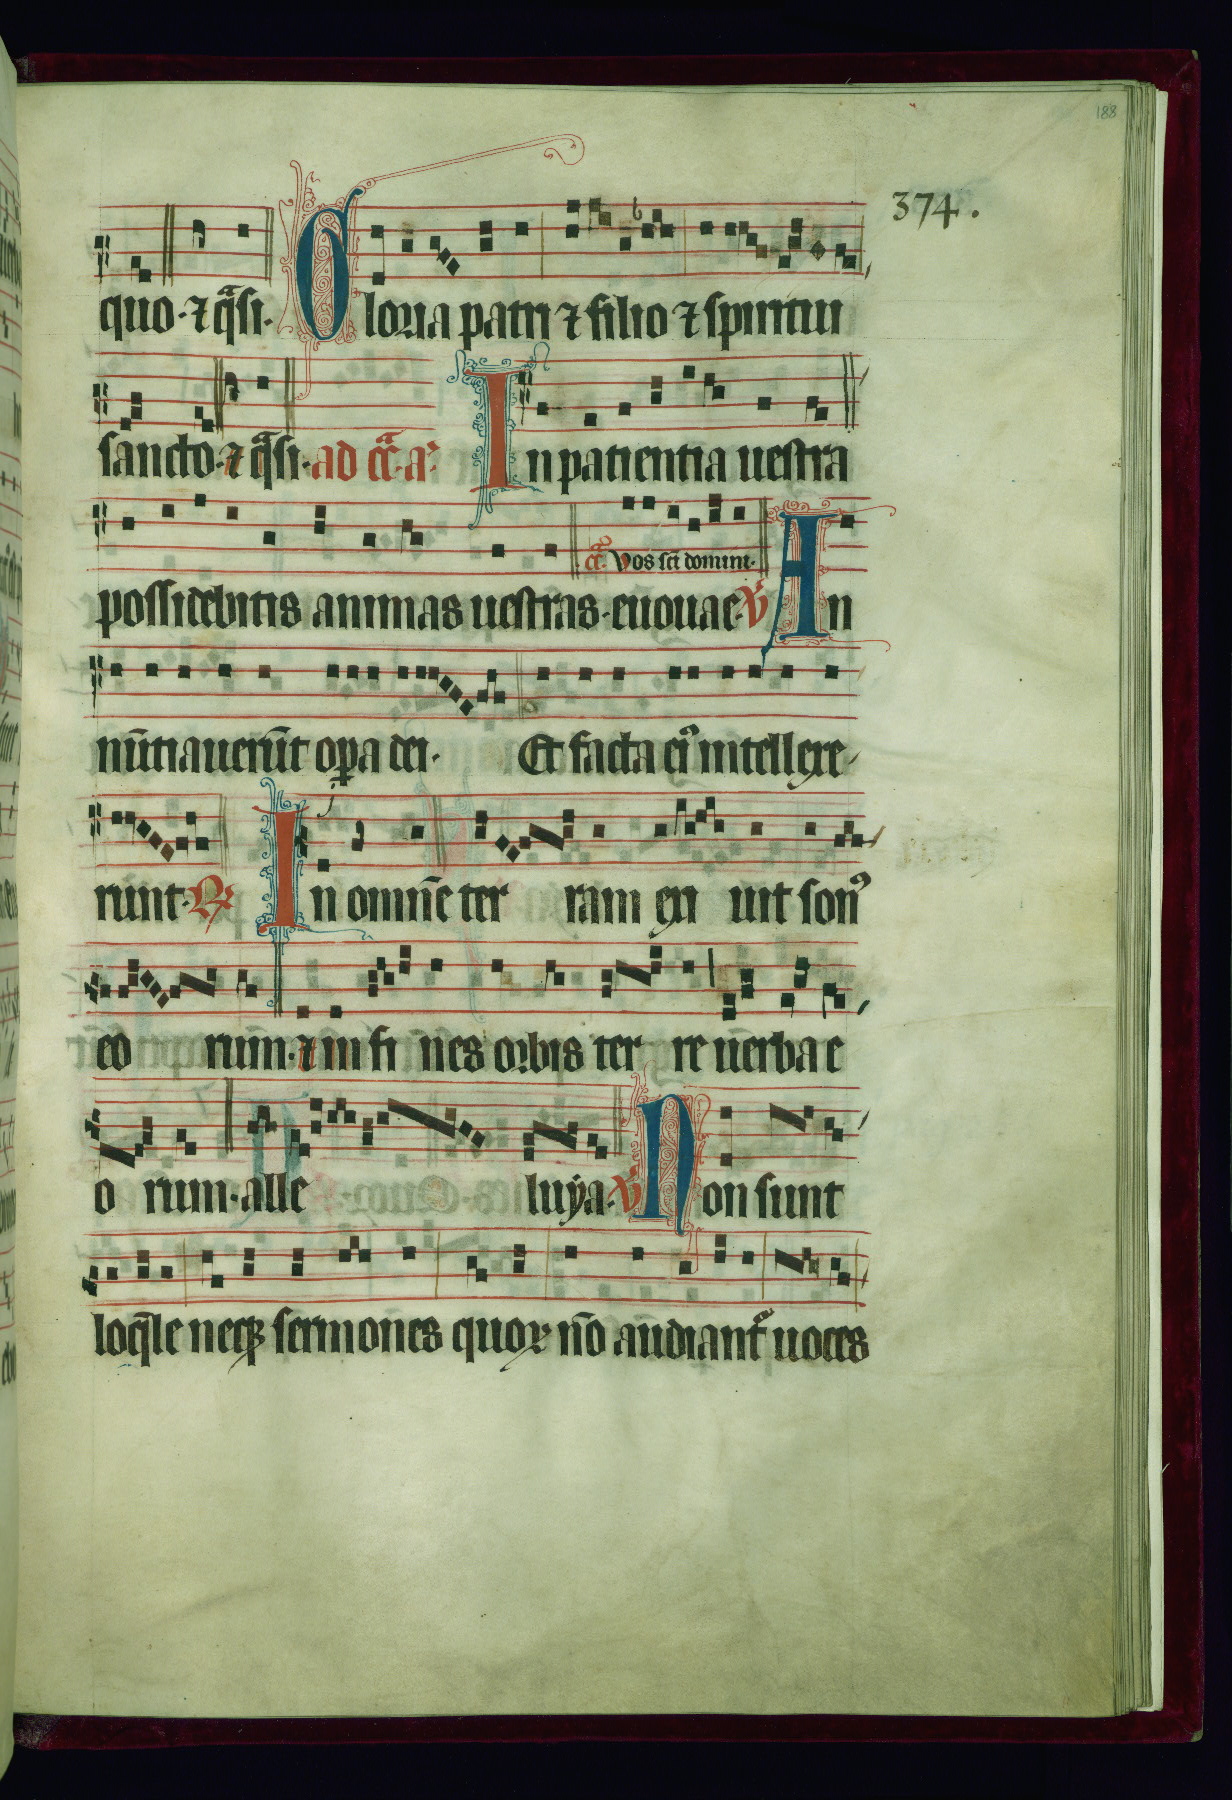 188
374.
quo· ⁊ q̄ᵃsi· Gloria patri ⁊ filio ⁊ spiritui
sancto· ⁊ q̄ᵃsi· ad cc̄ᵃ· aᵃ· In patientia uestra
cc̄ᵒ. Vos sc̄i domini·
possidebitis animas uestras· euouae· V̓ An
nūtiauerūt op̱a dei· Et facta eiꝰ intellexe
runt· ℟ In omnē ter ram exi uit sonꝰ
eo rum· ⁊ in fi nes orbis ter re uerba e
o rum· alle luẏa· V̓ Non sunt
loq̄le neqꝫ sermōnes quoꝝ nō audiant᷑ uoces